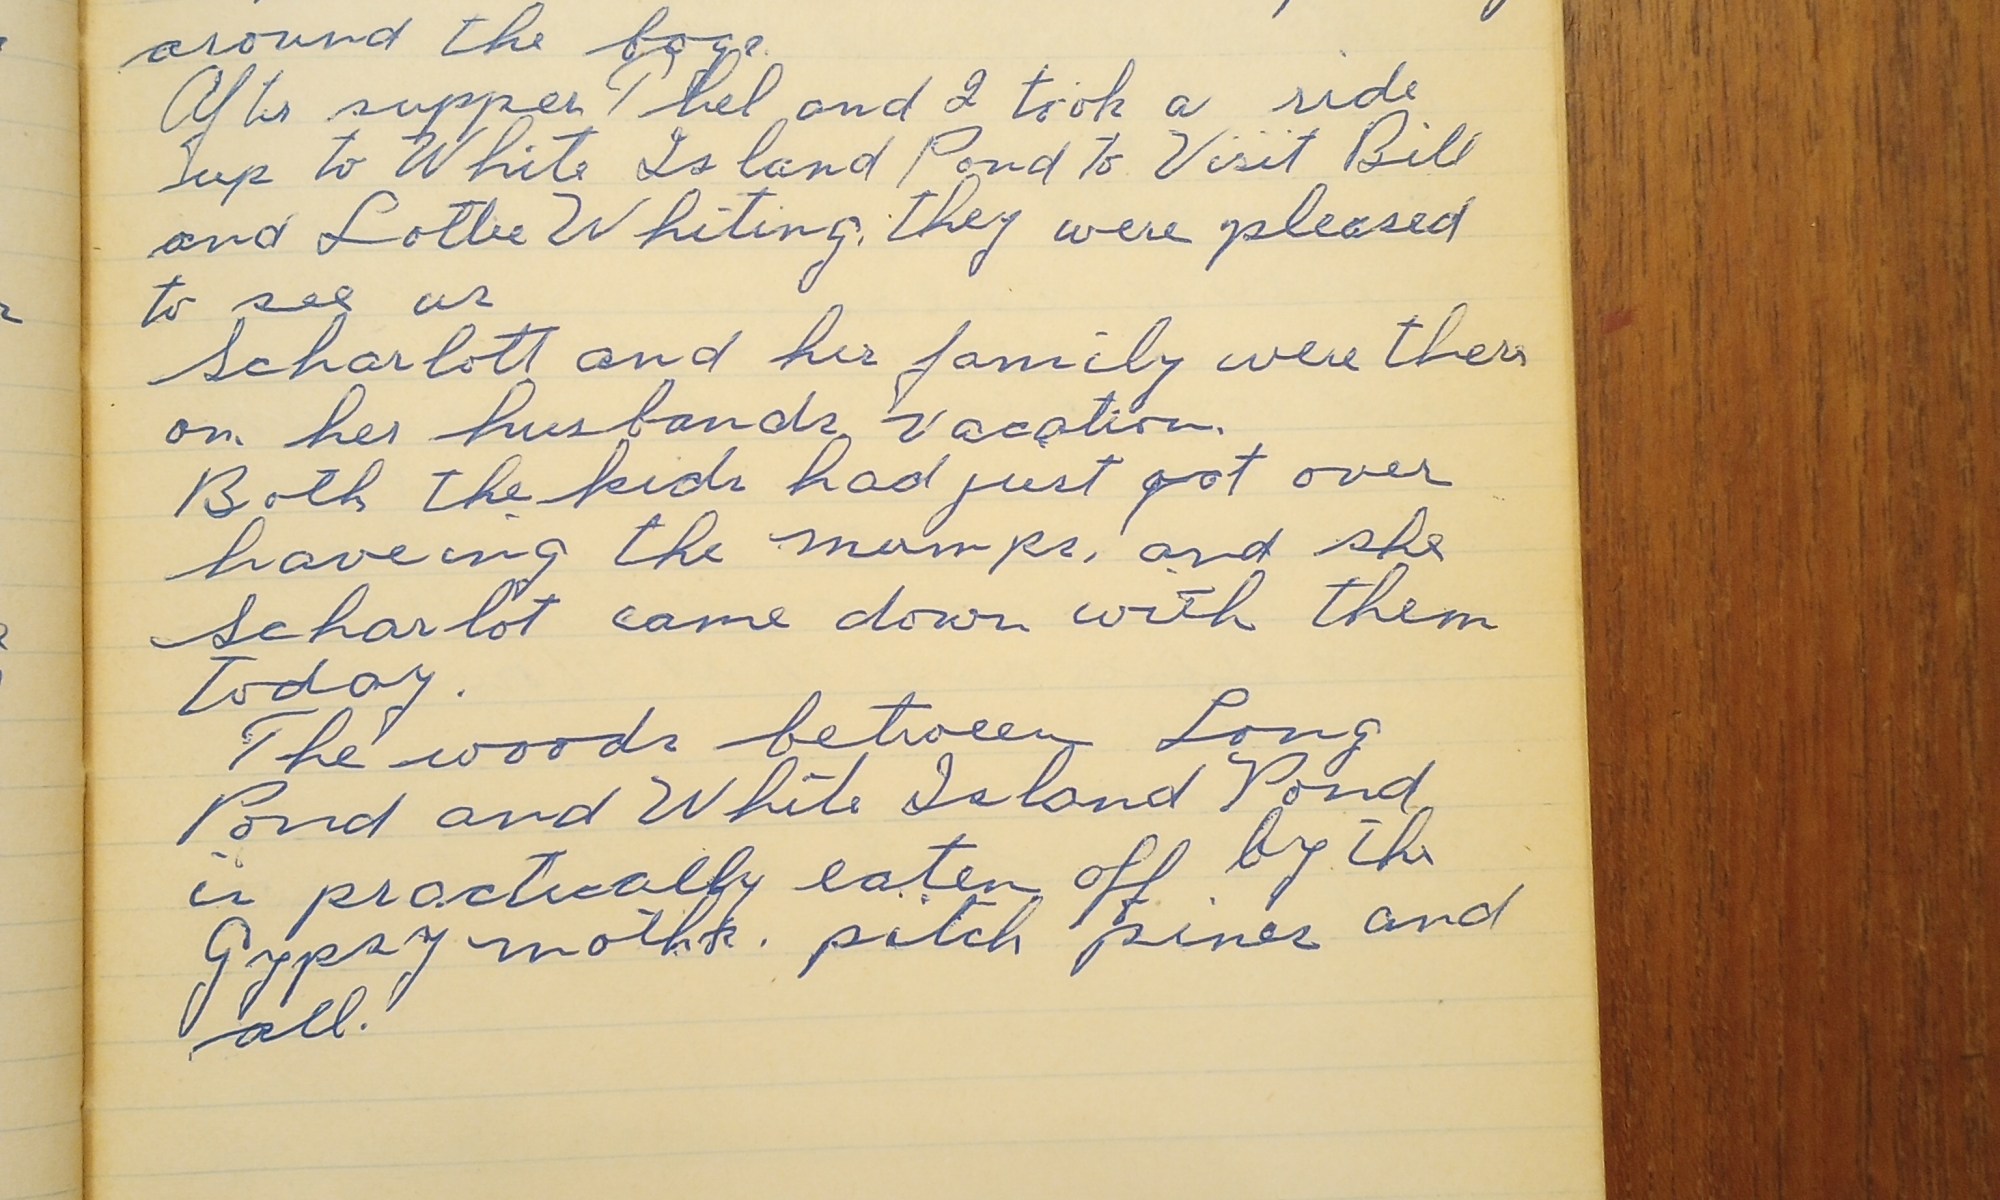 around the bogs.
After supper Thel and I took a ride
up to White Island Pond to Visit Bill
and Lottie Whiting. they were pleased
to see us
Scharlott and her family were there
on her husbands vacation.
Both the kids had just got over
haveing the mumps, and she
Scharlot came down with them
today.
The woods between Long
Pond and White Island Pond
is practically eaten off by the
Gypsy moths. pitch pines and
all.